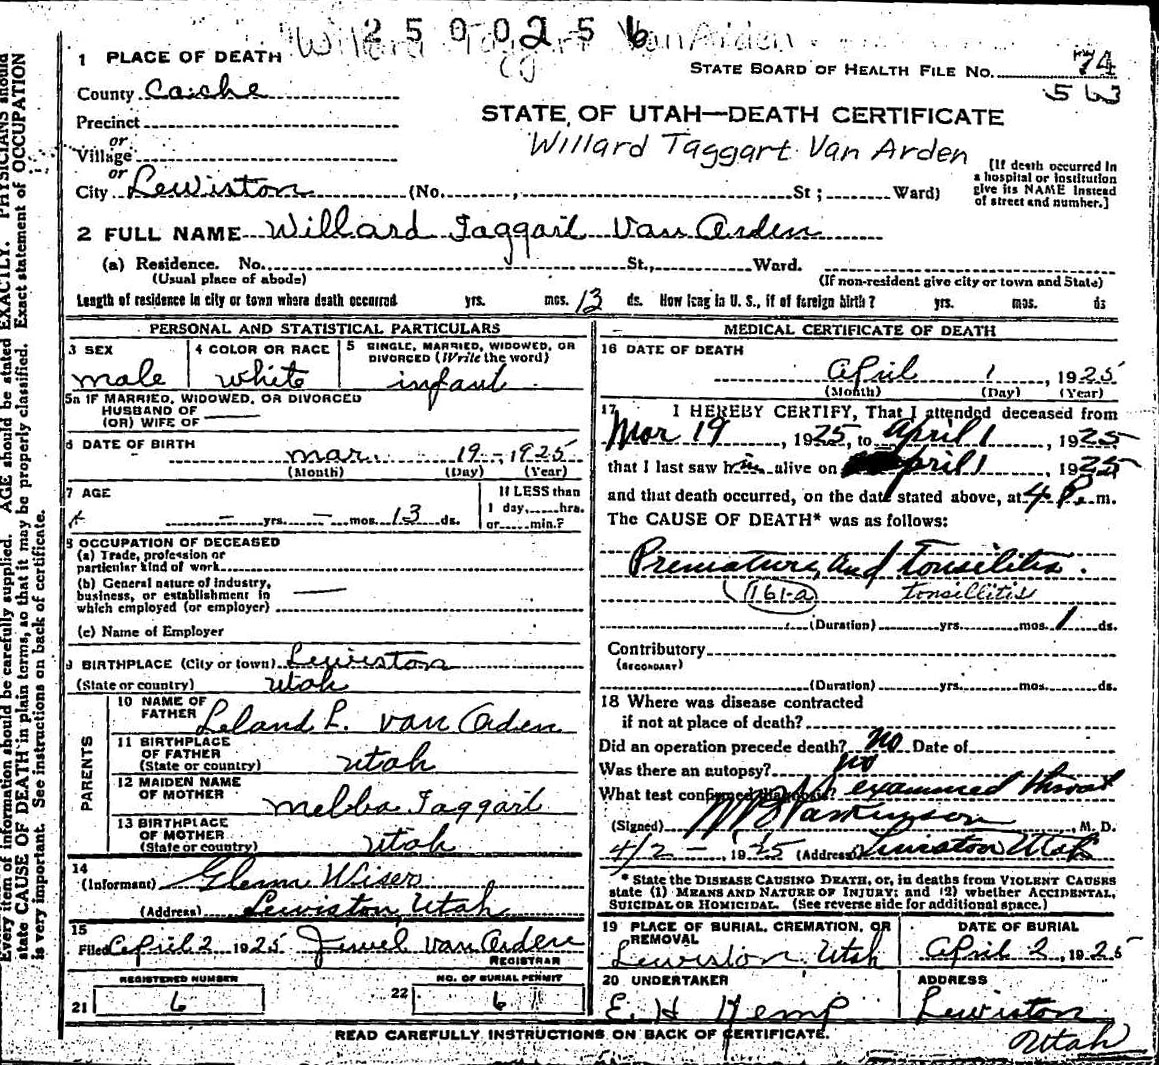 2500256
Willard Taggart Van Arden
1 PLACE OF DEATH
STATE BOARD OF HEALTH FILE No. 74
563
County Cache
STATE OF UTAH—DEATH CERTIFICATE
Precinct
Willard Taggart Van Arden
or
Village
or
City Lewiston (No. , St; Ward)
[If death occurred in
a hospital or institution
give its NAME instead
of street and number.]
2 FULL NAME Willard Taggart Van Orden
(a) Residence. No. St., Ward.
(Usual place of abode) (If non-resident give city or town and State)
Length of residence in city or town where death occurred yrs. mos. 13 ds. How long in U. S., if of foreign birth? yrs. mos. ds
PERSONAL AND STATISTICAL PARTICULARS
3 SEX
male
4 COLOR OR RACE
white
5 SINGLE, MARRIED, WIDOWED, OR
DIVORCED (Write the word)
infant
5a IF MARRIED, WIDOWED, OR DIVORCED
HUSBAND OF
(OR) WIFE OF
6 DATE OF BIRTH
mar. 19 - 1925
(Month) (Day) (Year)
7 AGE
— yrs. — mos. 13 ds.
If LESS than
1 day, hrs.
or min.?
8 OCCUPATION OF DECEASED
(a) Trade, profession or
particular kind of work
(b) General nature of industry,
business, or establishment in
which employed (or employer)
(c) Name of Employer
9 BIRTHPLACE (City or town) Lewiston
(State or country) Utah
PARENTS
10 NAME OF
FATHER Leland L. Van Orden
11 BIRTHPLACE
OF FATHER
(State or country) Utah
12 MAIDEN NAME
OF MOTHER Melba Taggart
13 BIRTHPLACE
OF MOTHER
(State or country) Utah
14
(Informant) Glenn Wiser
(Address) Lewiston, Utah
15
Filed April 2 1925 Jewel Van Orden
REGISTRAR
REGISTERED NUMBER
21 6
NO. OF BURIAL PERMIT
22 6
MEDICAL CERTIFICATE OF DEATH
16 DATE OF DEATH
April 1, 1925
(Month) (Day) (Year)
17 I HEREBY CERTIFY, That I attended deceased from
Mar 19, 1925, to April 1, 1925
that I last saw him alive on April 1, 1925
and that death occurred, on the date stated above, at 4 P. m.
The CAUSE OF DEATH* was as follows:
Premature, and tonsilitis.
161-a tonsillitis
(Duration) yrs. mos. 1 ds.
Contributory
(SECONDARY)
(Duration) yrs. mos. ds.
18 Where was disease contracted
if not at place of death?
Did an operation precede death? no Date of
Was there an autopsy? no
What test confirmed diagnosis? examined throat
(Signed) Parkinson, M. D.
4/2 -, 1925 (Address) Lewiston Utah
* State the DISEASE CAUSING DEATH, or, in deaths from VIOLENT CAUSES
state (1) MEANS AND NATURE OF INJURY; and (2) whether ACCIDENTAL,
SUICIDAL OR HOMICIDAL. (See reverse side for additional space.)
19 PLACE OF BURIAL, CREMATION, OR
REMOVAL
Lewiston, Utah
DATE OF BURIAL
April 2, 1925
20 UNDERTAKER
E. H. Hemp
ADDRESS
Lewiston
Utah
READ CAREFULLY INSTRUCTIONS ON BACK OF CERTIFICATE.
Every item of information should be carefully supplied. AGE should be stated EXACTLY. PHYSICIANS should
state CAUSE OF DEATH in plain terms, so that it may be properly classified. Exact statement of OCCUPATION
is very important. See instructions on back of certificate.